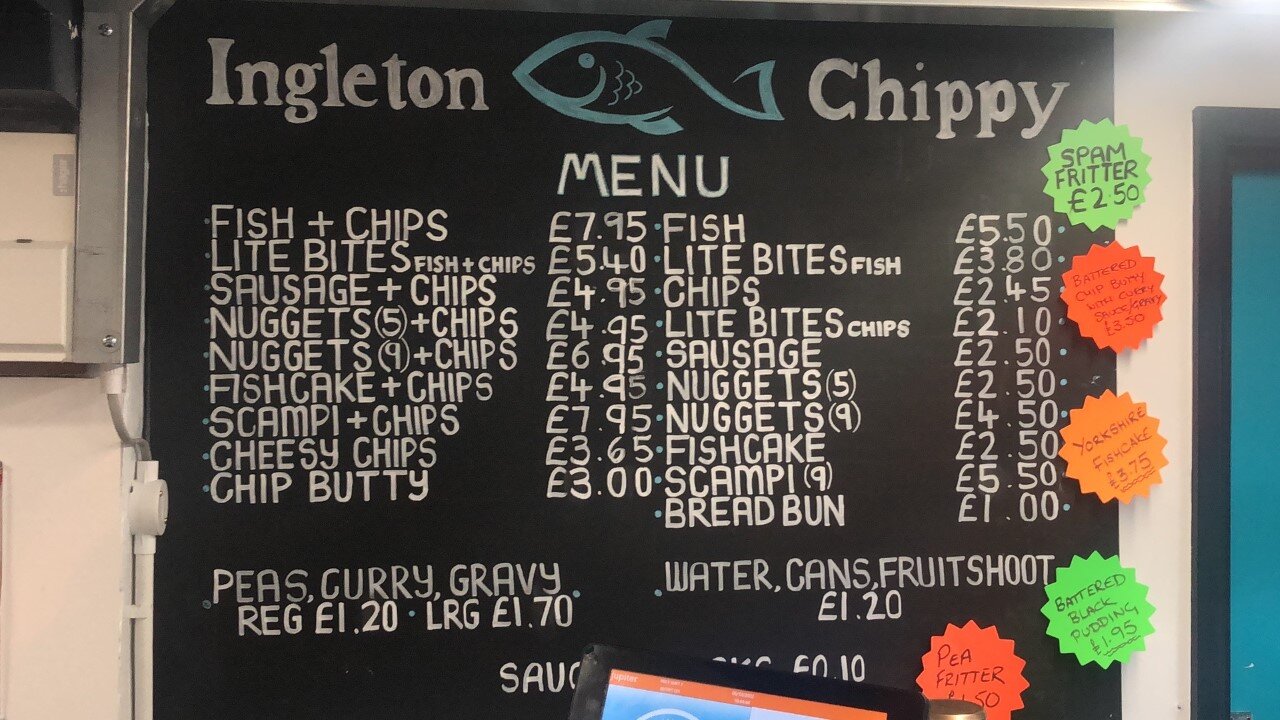 Ingleton Chippy
MENU
FISH + CHIPS £7.95
LITE BITES FISH + CHIPS £5.40
SAUSAGE + CHIPS £4.95
NUGGETS (5) + CHIPS £4.95
NUGGETS (9) + CHIPS £6.95
FISHCAKE + CHIPS £4.95
SCAMPI + CHIPS £7.95
CHEESY CHIPS £3.65
CHIP BUTTY £3.00
FISH £5.50
LITE BITES FISH £3.80
CHIPS £2.45
LITE BITES CHIPS £2.10
SAUSAGE £2.50
NUGGETS (5) £2.50
NUGGETS (9) £4.50
FISHCAKE £2.50
SCAMPI (9) £5.50
BREAD BUN £1.00
PEAS, CURRY, GRAVY
REG £1.20 · LRG £1.70
WATER, CANS, FRUITSHOOT
£1.20
£0.10
SPAM
FRITTER
£2.50
BATTERED
CHIP BUTTY
WITH CURRY
SAUCE/GRAVY
£3.50
YORKSHIRE
FISHCAKE
£3.75
BATTERED
BLACK
PUDDING
£1.95
PEA
FRITTER
£1.50
jupiter